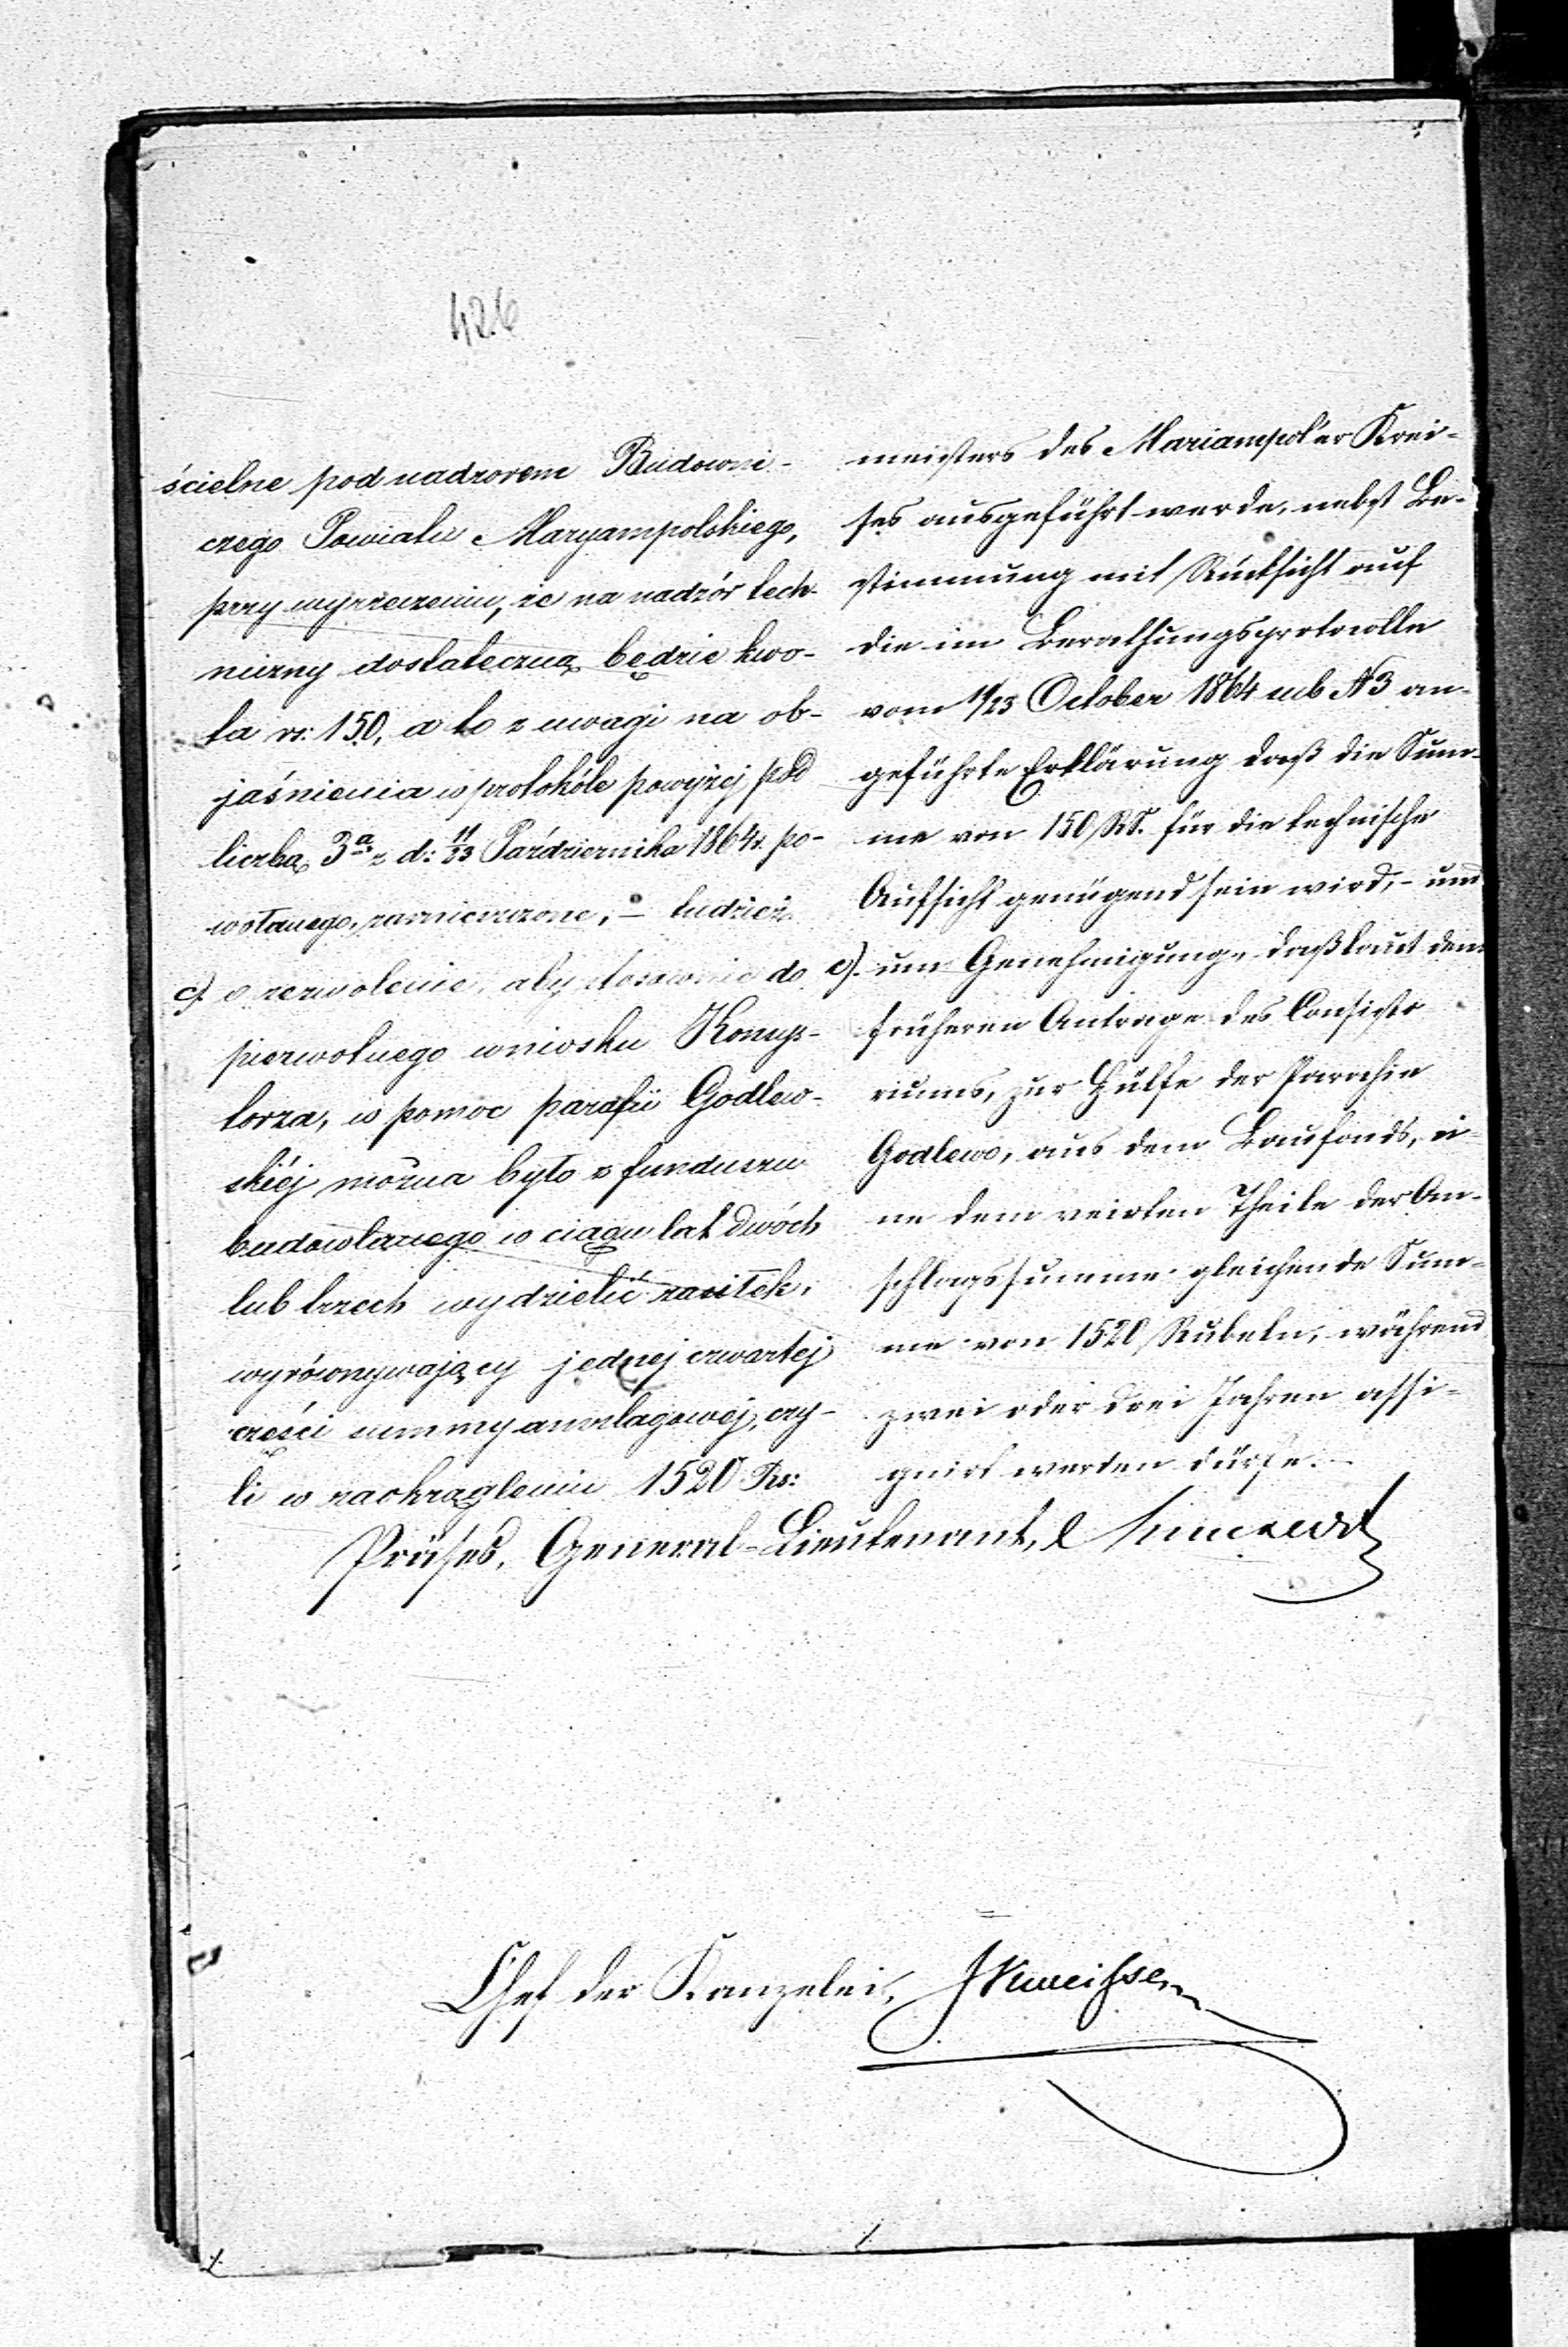 426
ścielne pod nadzorem Budowni-
czego Powiatu Maryampolskiego,
przy wyrzeczeniu, że na nadzór tech-
niczny dostateczną będzie kwo-
ta rs: 150, a to z uwagi na ob-
jaśnienia w protokóle powyżej pod
liczbą 3ą z d: 11/23 Października 1864 r. po-
wołanego, zamieszczone, – tudzież
c). o zezwolenie, aby stosownie do
pierwotnego wniosku Konsys-
torza, w pomoc parafii Godlew-
skiéj można było z funduszu
budowlanego w ciągu lat dwóch
lub trzech wydzielić zasiłek,
wyrównywający jednej czwartej
części summy anszlagowéj, czy-
li w zaokrągleniu 1520 Rs:
meisters des Mariampol'er Krei-
ses ausgeführt werde, nebst Be-
stimmung mit Rücksicht auf
die im Berathungsprotocolle
vom 11/23 October 1864 sub N 3 an-
geführte Erklärung daß die Sum-
me von 150 RS. für die technische
Aufsicht genügend sein wird, – und
c). um Genehmigung, daß laut dem
früheren Antrage des Consisto-
riums, zur Hülfe der Parochie
Godlewo, aus dem Baufonds, ei-
ne dem vierten Theile der An-
schlagssumme gleichende Sum-
me von 1520 Rubeln, während
zwei oder drei Jahren assi-
gnirt werden dürfe.
Präses, General-Lieutenant,
Chef der Kanzelei,